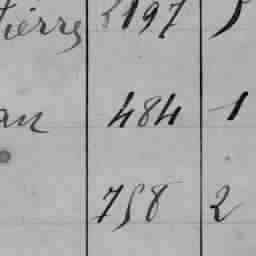 ierre 1197 5
an 484 1
758 2